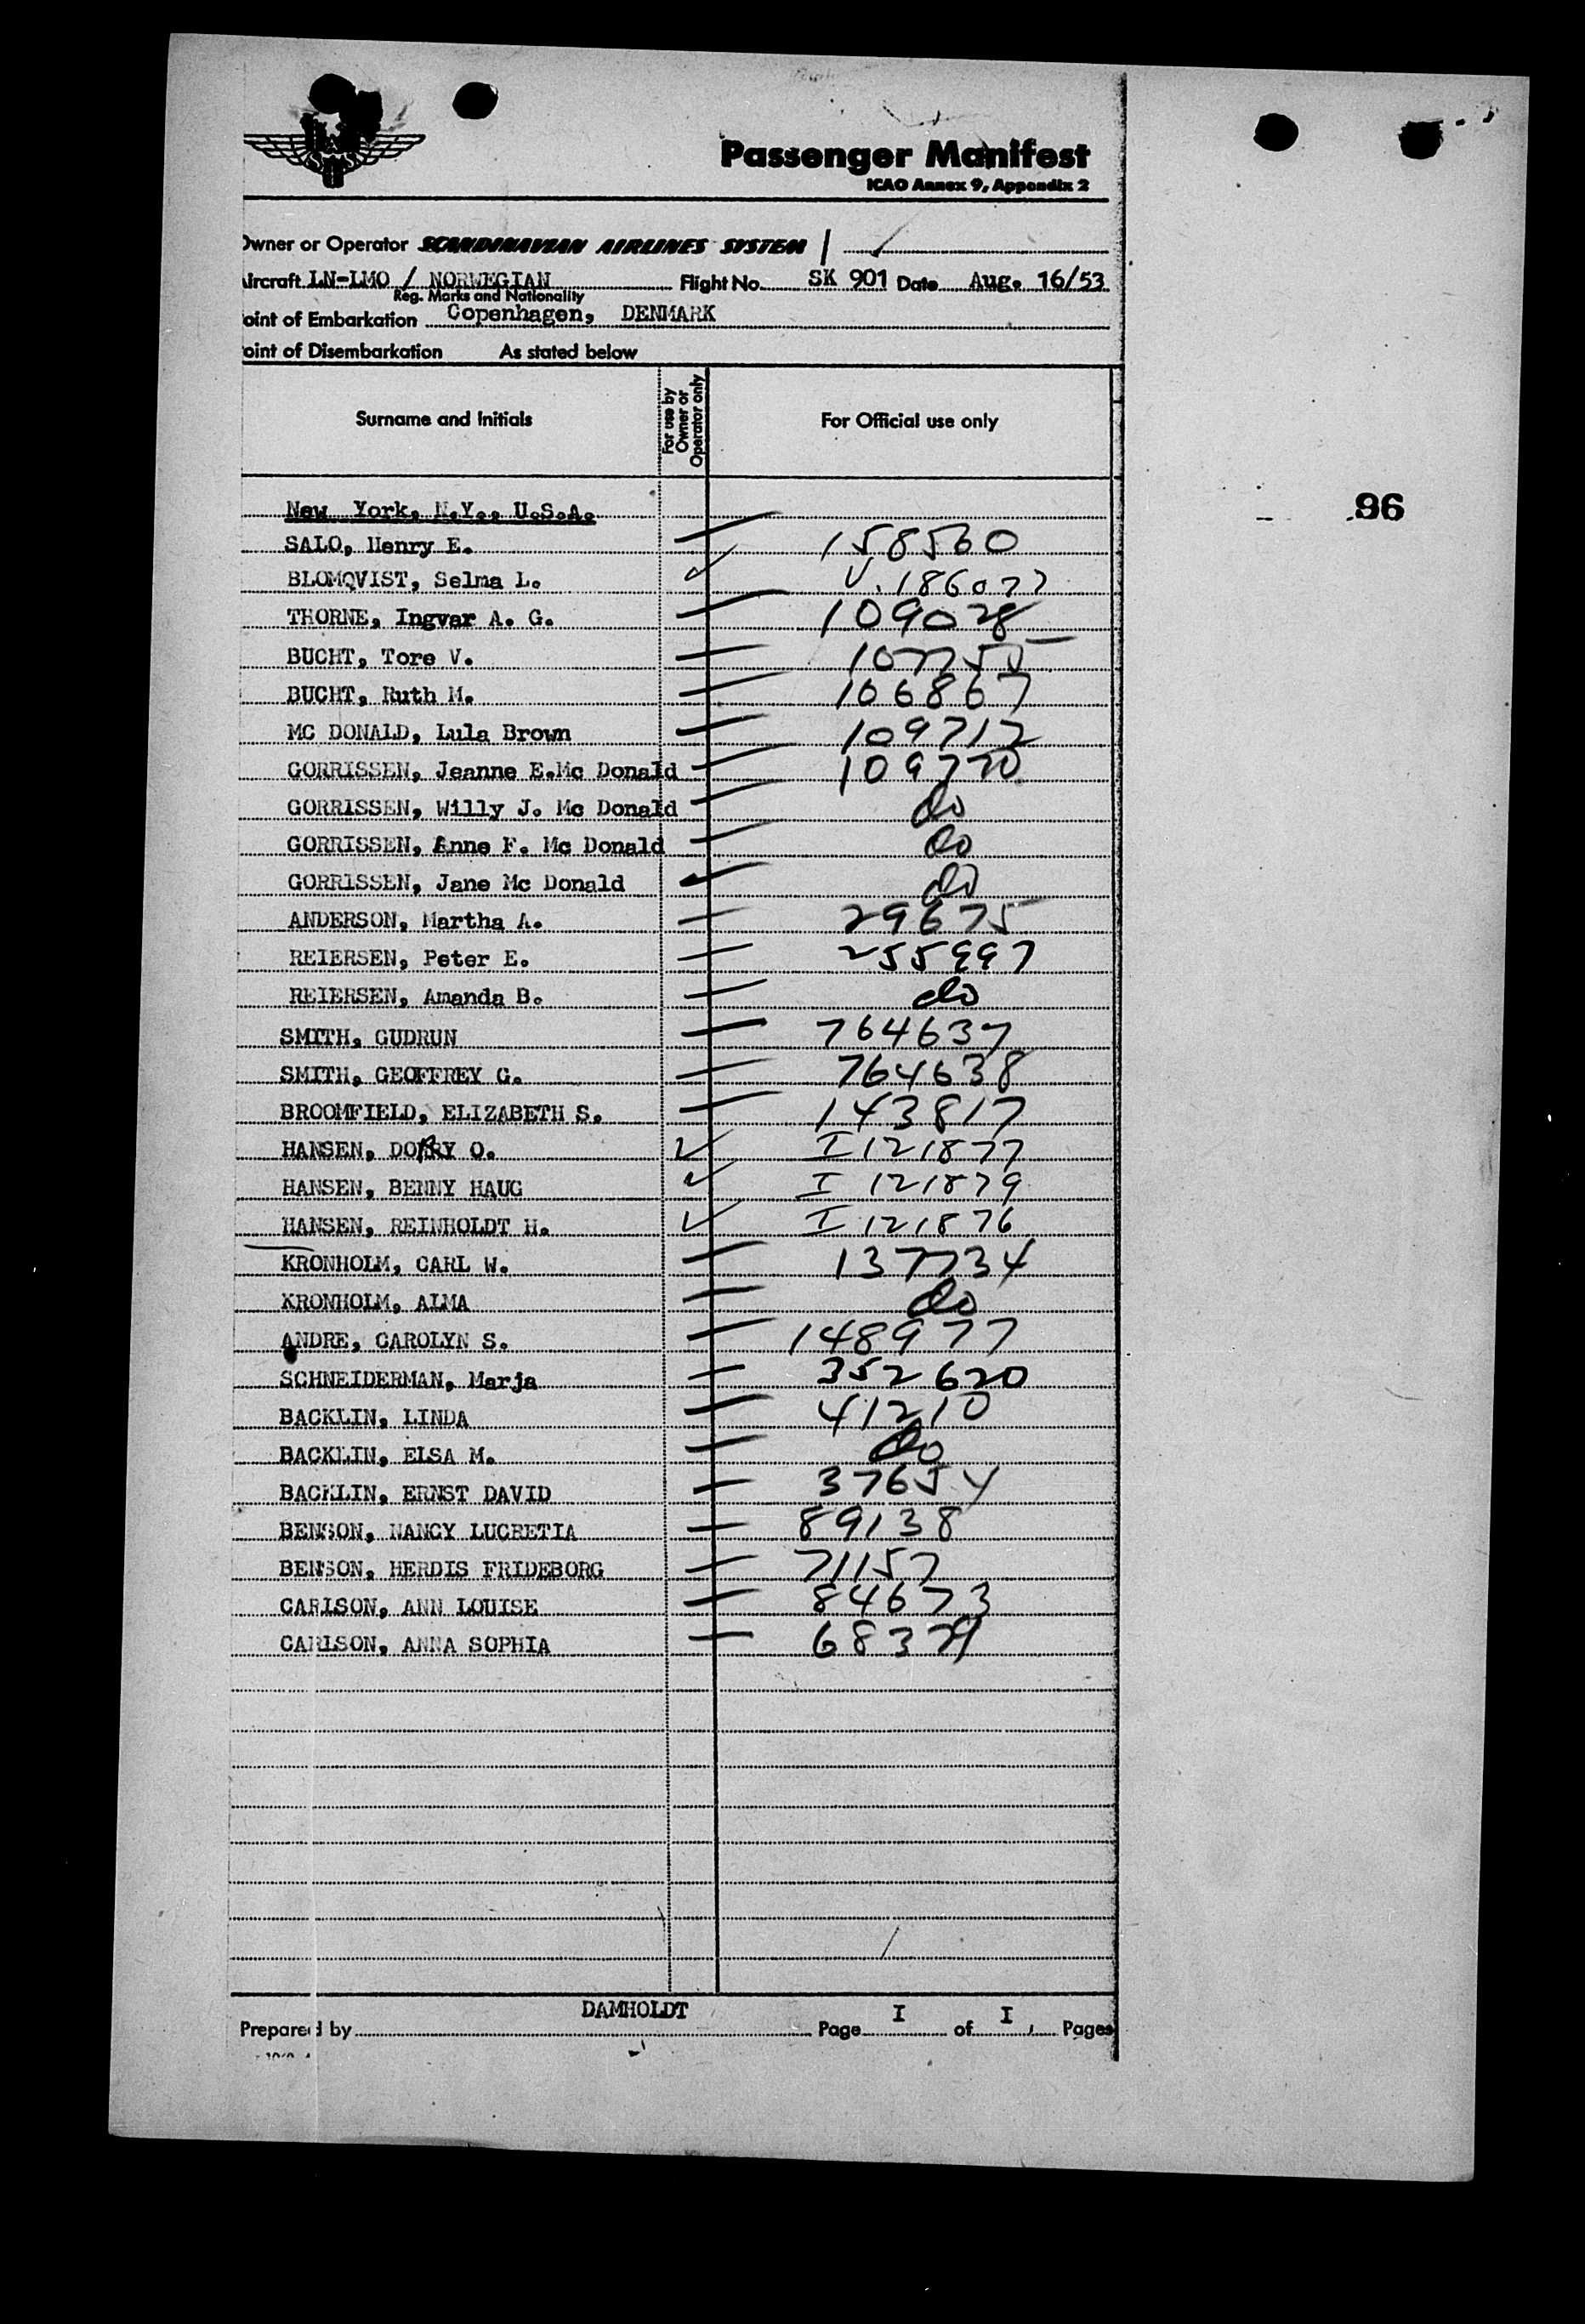 SAS
Passenger Manifest
ICAO Annex 9, Appendix 2
Owner or Operator SCANDINAVIAN AIRLINES SYSTEM
Aircraft LN-LMO / NORWEGIAN Flight No. SK 901 Date Aug. 16/53
Reg. Marks and Nationality
oint of Embarkation Copenhagen, DENMARK
oint of Disembarkation As stated below
Surname and Initials For use by Owner or Operator only For Official use only
96
New York, N.Y., U.S.A.
SALO, Henry E. 158560
BLOMQVIST, Selma L. V. 186077
THORNE, Ingvar A. G. 109028
BUCHT, Tore V. 107755
BUCHT, Ruth M. 106867
MC DONALD, Lula Brown 109712
GORRISSEN, Jeanne E.Mc Donald 109720
GORRISSEN, Willy J. Mc Donald do
GORRISSEN, Anne F. Mc Donald do
GORRISSEN, Jane Mc Donald do
ANDERSON, Martha A. 29675
REIERSEN, Peter E. 255997
REIERSEN, Amanda B. do
SMITH, GUDRUN 764637
SMITH, GEOFFREY G. 764638
BROOMFIELD, ELIZABETH S. 143817
HANSEN, DORRY O. I 121877
HANSEN, BENNY HAUG I 121879
HANSEN, REINHOLDT H. I 121876
KRONHOLM, CARL W. 137734
KRONHOLM, ALMA do
ANDRE, CAROLYN S. 148977
SCHNEIDERMAN, Marja 352620
BACKLIN, LINDA 41210
BACKLIN, ELSA M. do
BACKLIN, ERNST DAVID 37654
BENSON, NANCY LUCRETIA 89138
BENSON, HERDIS FRIDEBORG 71157
CARLSON, ANN LOUISE 84673
CARLSON, ANNA SOPHIA
DAMHOLDT
Prepared by Page I of I Pages